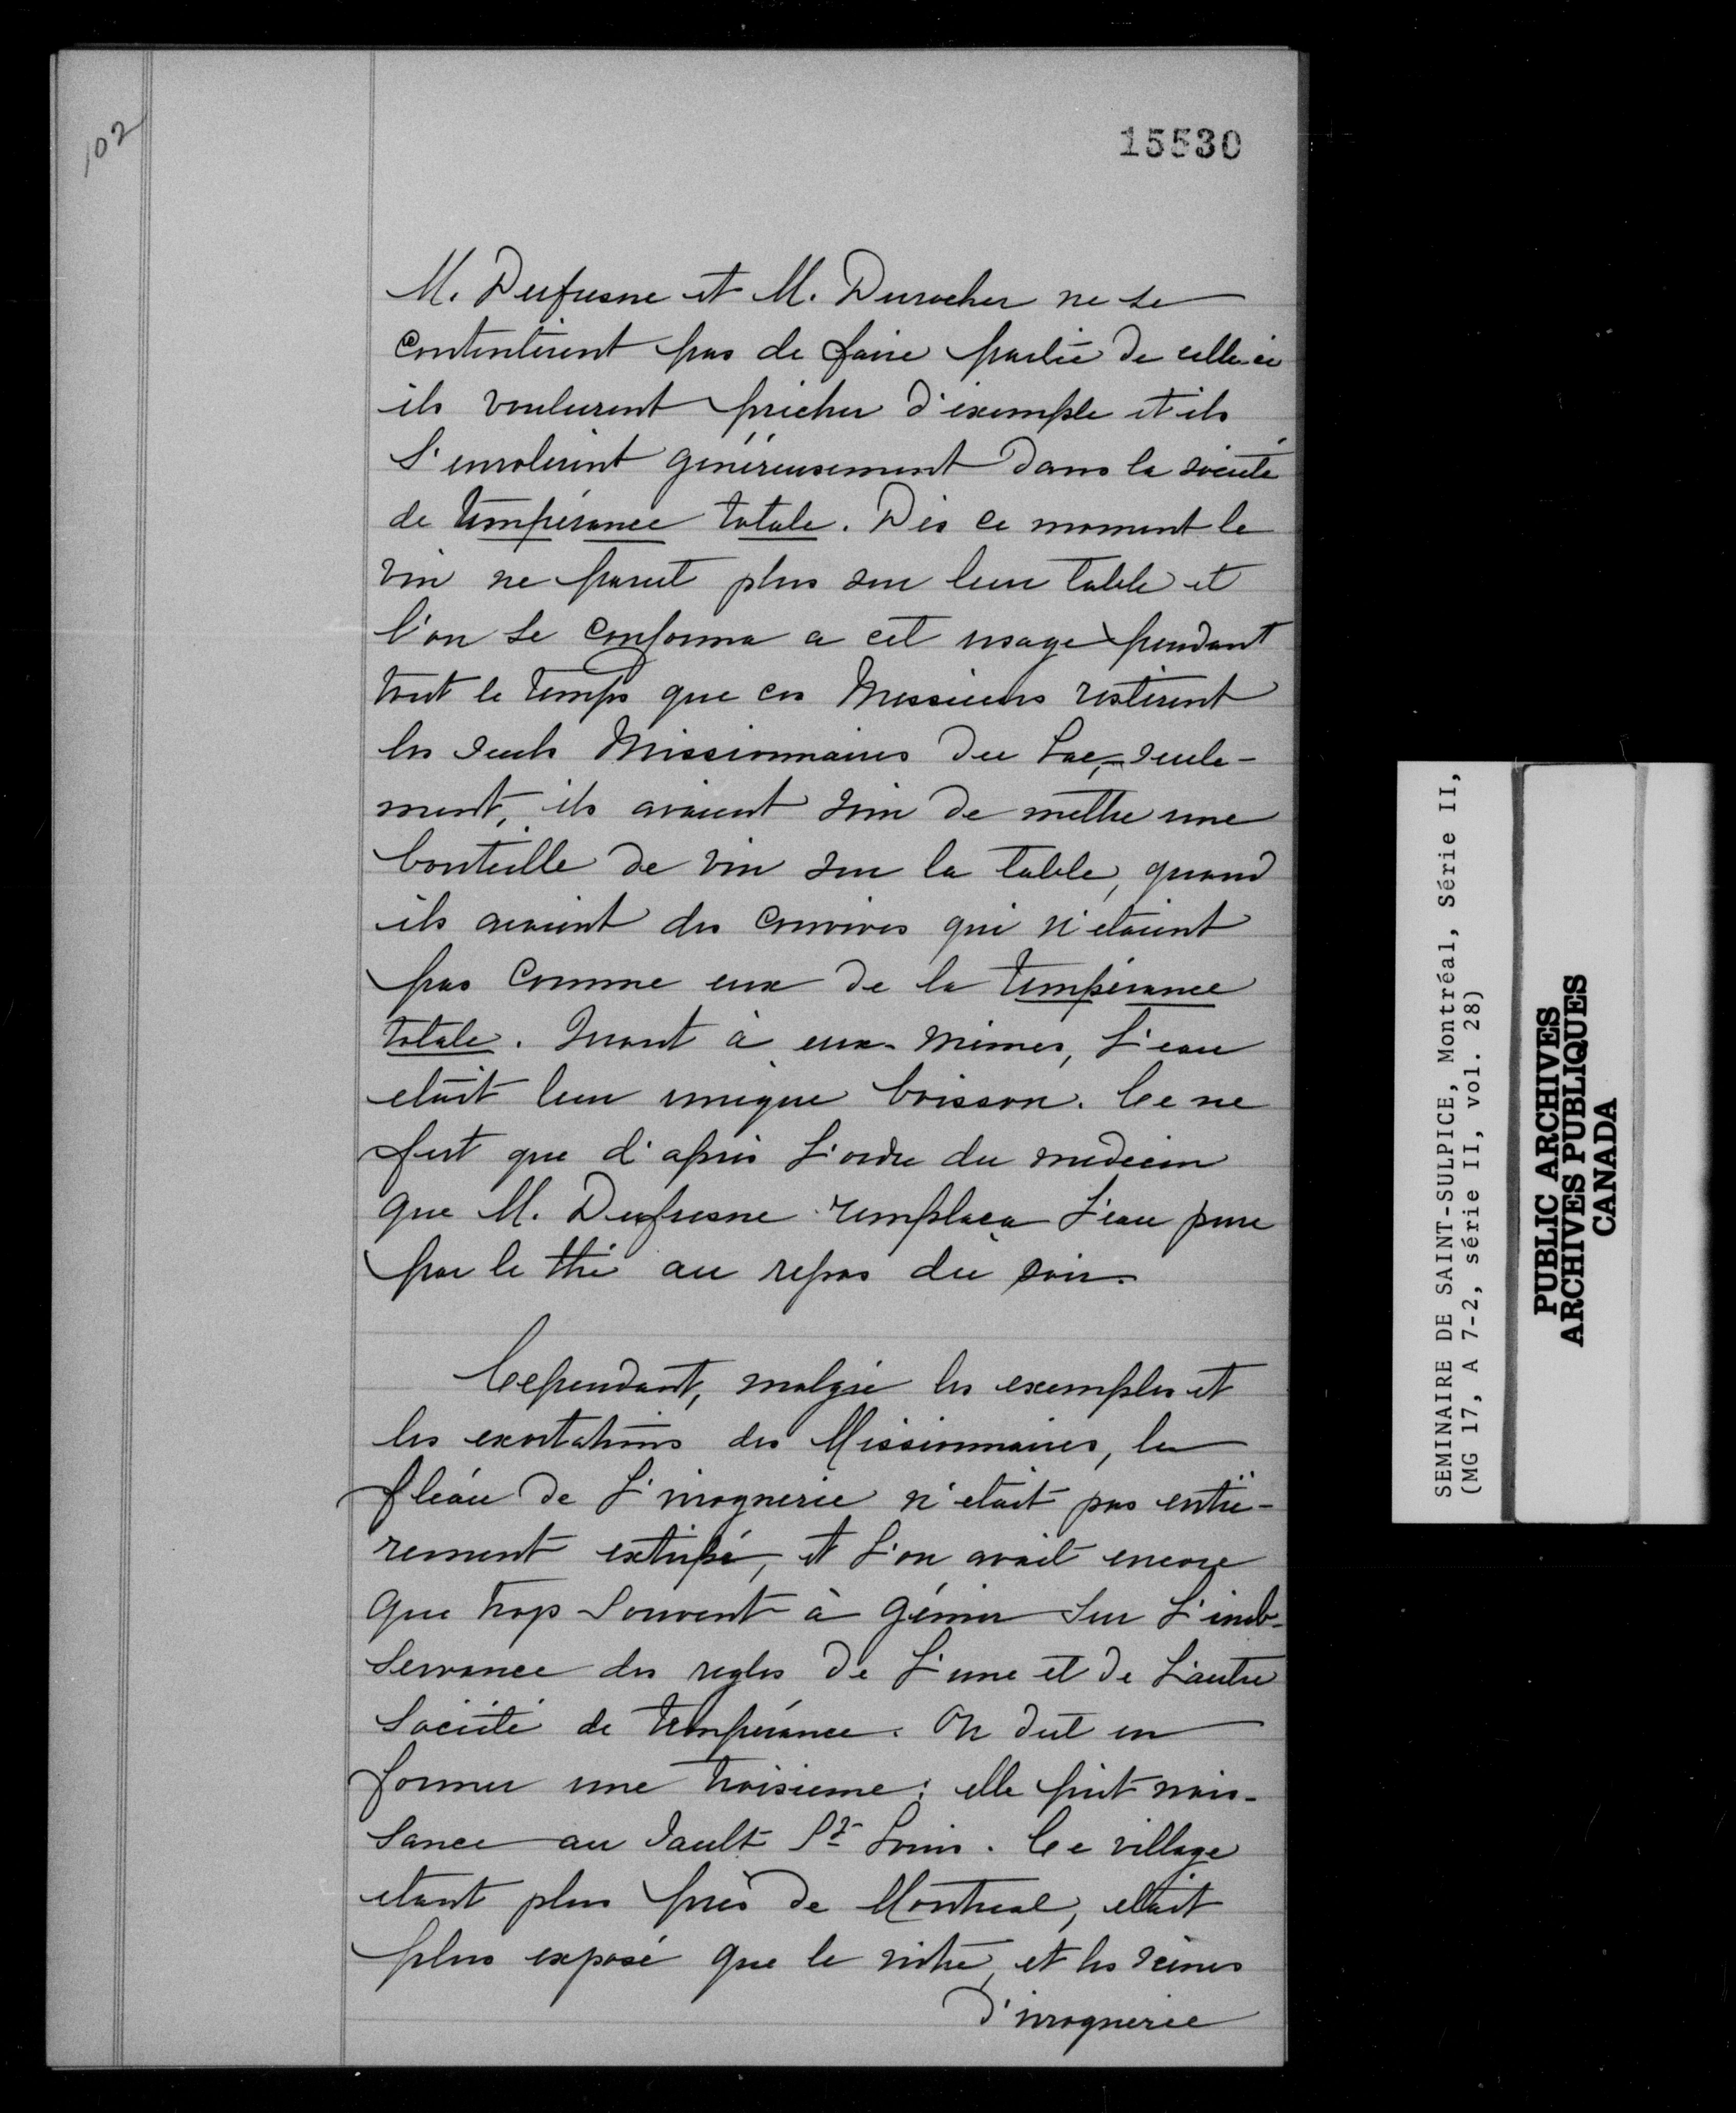 102
15530
M. Dufresne et M. Durocher ne se
contentèrent pas de faire partie de celle-ci
ils voulurent prêcher d'exemple et ils
s'enrolèrent généreusement dans la société
de tempérance totale. Dès ce moment le
vin ne parut plus sur leur table et
l'on se conforma a cet usage pendant
tout le temps que ces Messieurs restèrent
les seuls Missionnaires du Lac, seule-
ment, ils avaient soin de mettre une
bouteille de vin sur la table, quand
ils avaient des convives qui n'etaient
pas comme eux de la tempérance
totale. Quant à eux-mêmes, L'eau
etait leur unique boisson. Ce ne
fut que d'après L'ordre du medecin
que M. Dufresne remplaca L'eau pure
par le thé au repas du soir.
Cependant, malgré les exemples et
les exortations des Missionnaires, le
fléau de L'ivrognerie n'etait pas entiè-
rement extirpé, et L'on avait encore
que trop souvent à gémir sur L'inob-
servance des regles de L'une et de L'autre
Société de tempérance. On dut en
former une troisieme: elle prit nais-
sance au Sault St Louis. Ce village
etant plus près de Montreal, etait
plus exposé que le nôtre, et les scènes
d'ivrognerie
SEMINAIRE DE SAINT-SULPICE, Montréal, Série II,
(MG 17, A 7-2, série II, vol. 28)
PUBLIC ARCHIVES
ARCHIVES PUBLIQUES
CANADA